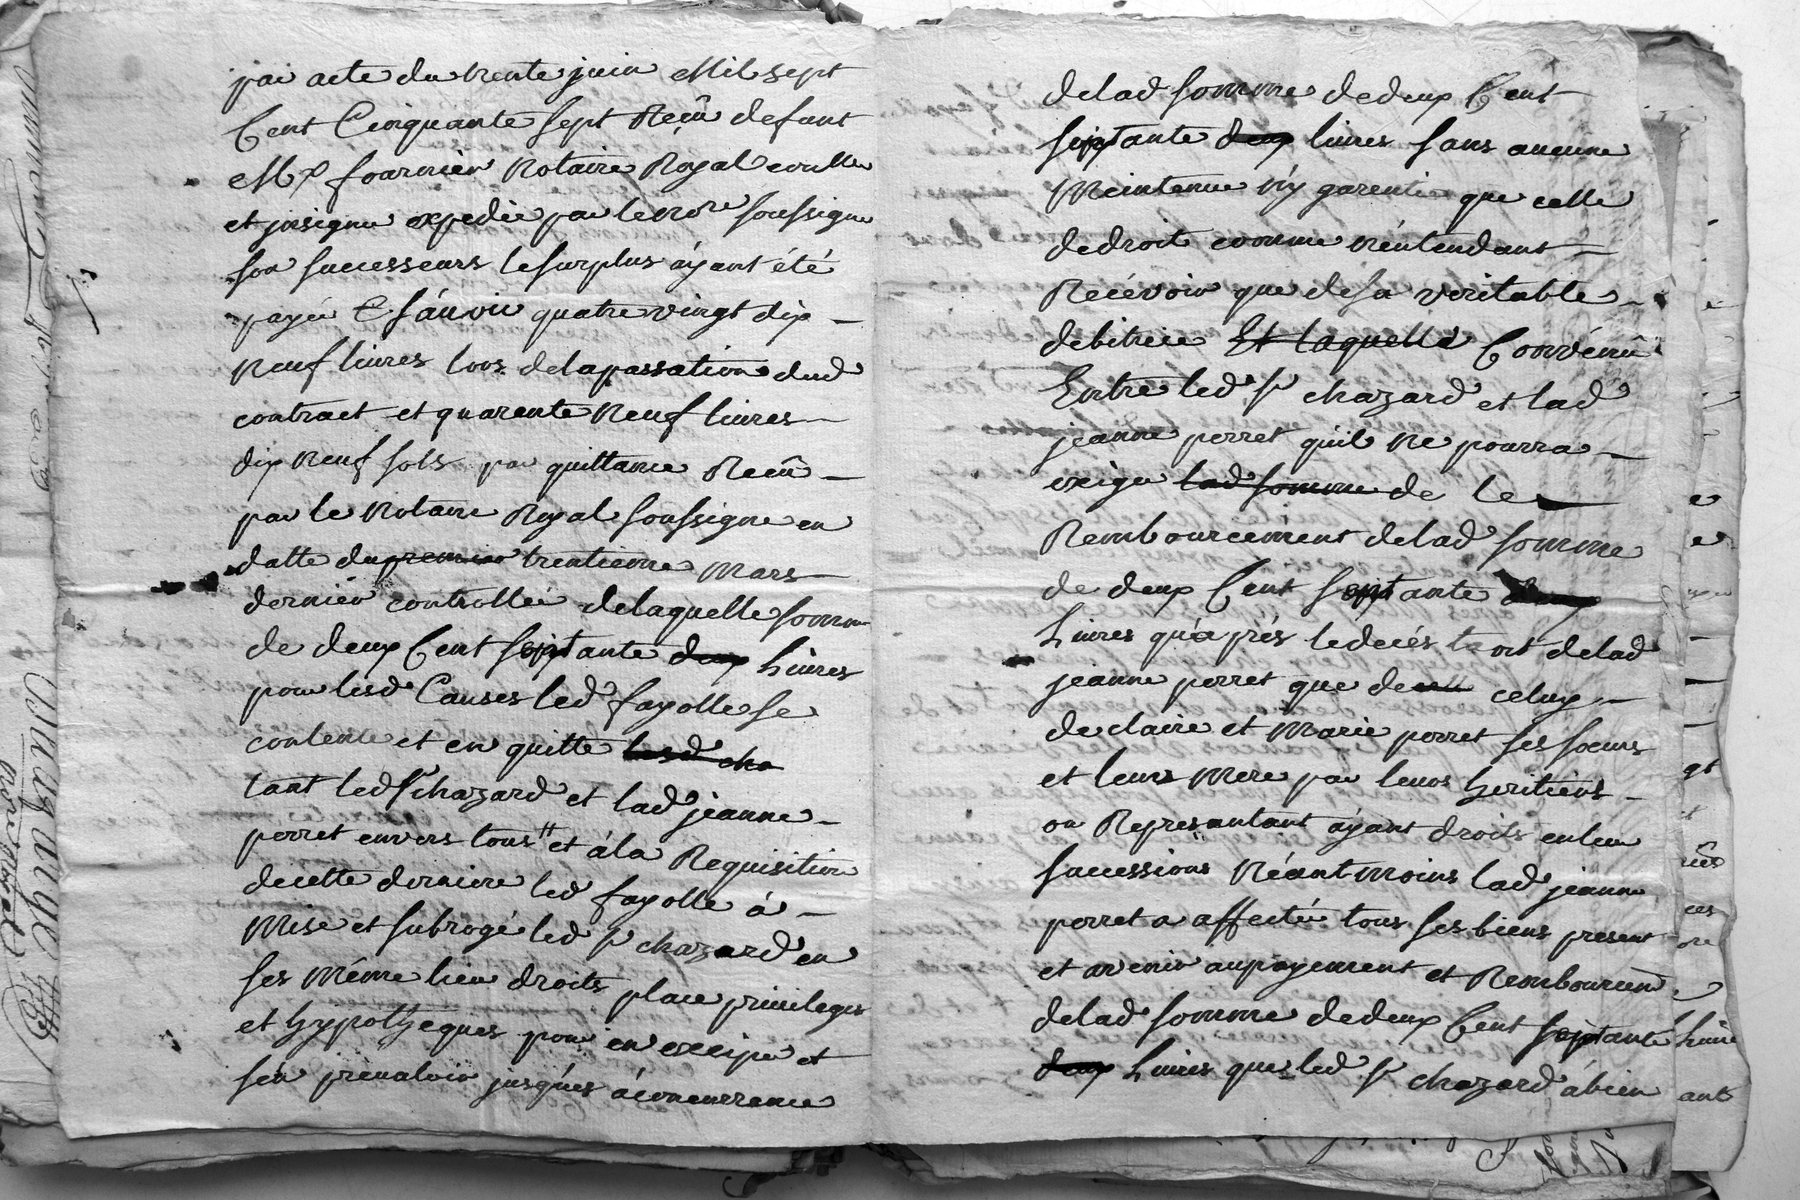 par acte du trente juin Mil sept
Cent Cinquante sept Reçû defunt
Me fournier Notaire Royal controllé
et insigné expedié par le nore soussigné
son successeurs le surplus áyant été
payé Sçáuoir quatre vingt dix
neuf liures lors de la passation dud
contract et quarente Neuf liures
dix neuf sols par quittance Reçû
par le Notaire Royal soussigné en
datte du premier trentieme mars
dernier controllée de laquelle somme
de deux Cent septante deux Liures
pour lesd Causes led fayolle se
contente et en quitte lesd cha
tant led sr chazard et lad jeanne
perret envers tous et á la Requisition
de cette derniere led fayolle á
Mise et subrogé led sr chazard en
ses même lieu droits place priuileges
et hypotheques pour en exciper et
s'en préualoir jusques á concurrance
de lad somme de deux Cent
septante deux liures sans aucune
Maintenue n'y garentie que celle
de droit comme n'éntendant
Récévoir que de sa veritable
debitrice Et laquelle Convénu
Entre led sr chazard et lad
jeanne perret qu'il Ne pourra
exiger lad somme de le
Rembourcement de lad somme
de deux Cent septante deux
Liures qu'aprés le decés tant de lad
jeanne perret que de celuy
de claire et Marie perret ses soeurs
et leurs Mere par leurs héritiérs
ou Representant áyant droits en leur
successions Néant moins lad jeanne
perret a affecté tous ses biens present
et avenir au payement et Rembourcemt
de lad somme de deux Cent septante
deux Liures que led sr chazard á bien